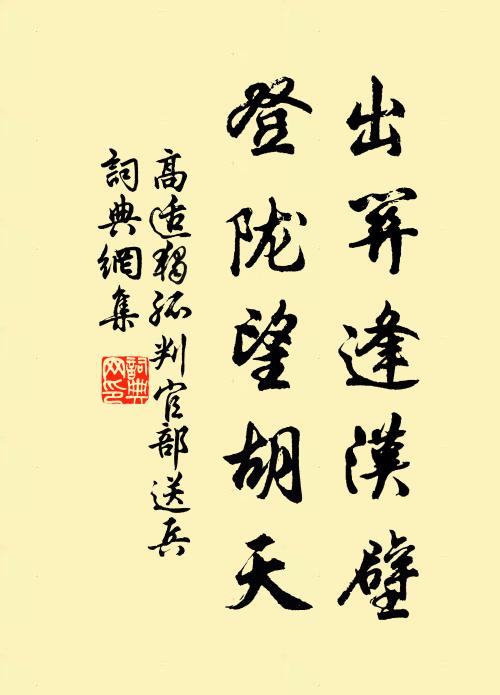 出關逢漢壁
登陇望胡天
高适獨孤判官部送兵
詞典網集
詞典網印